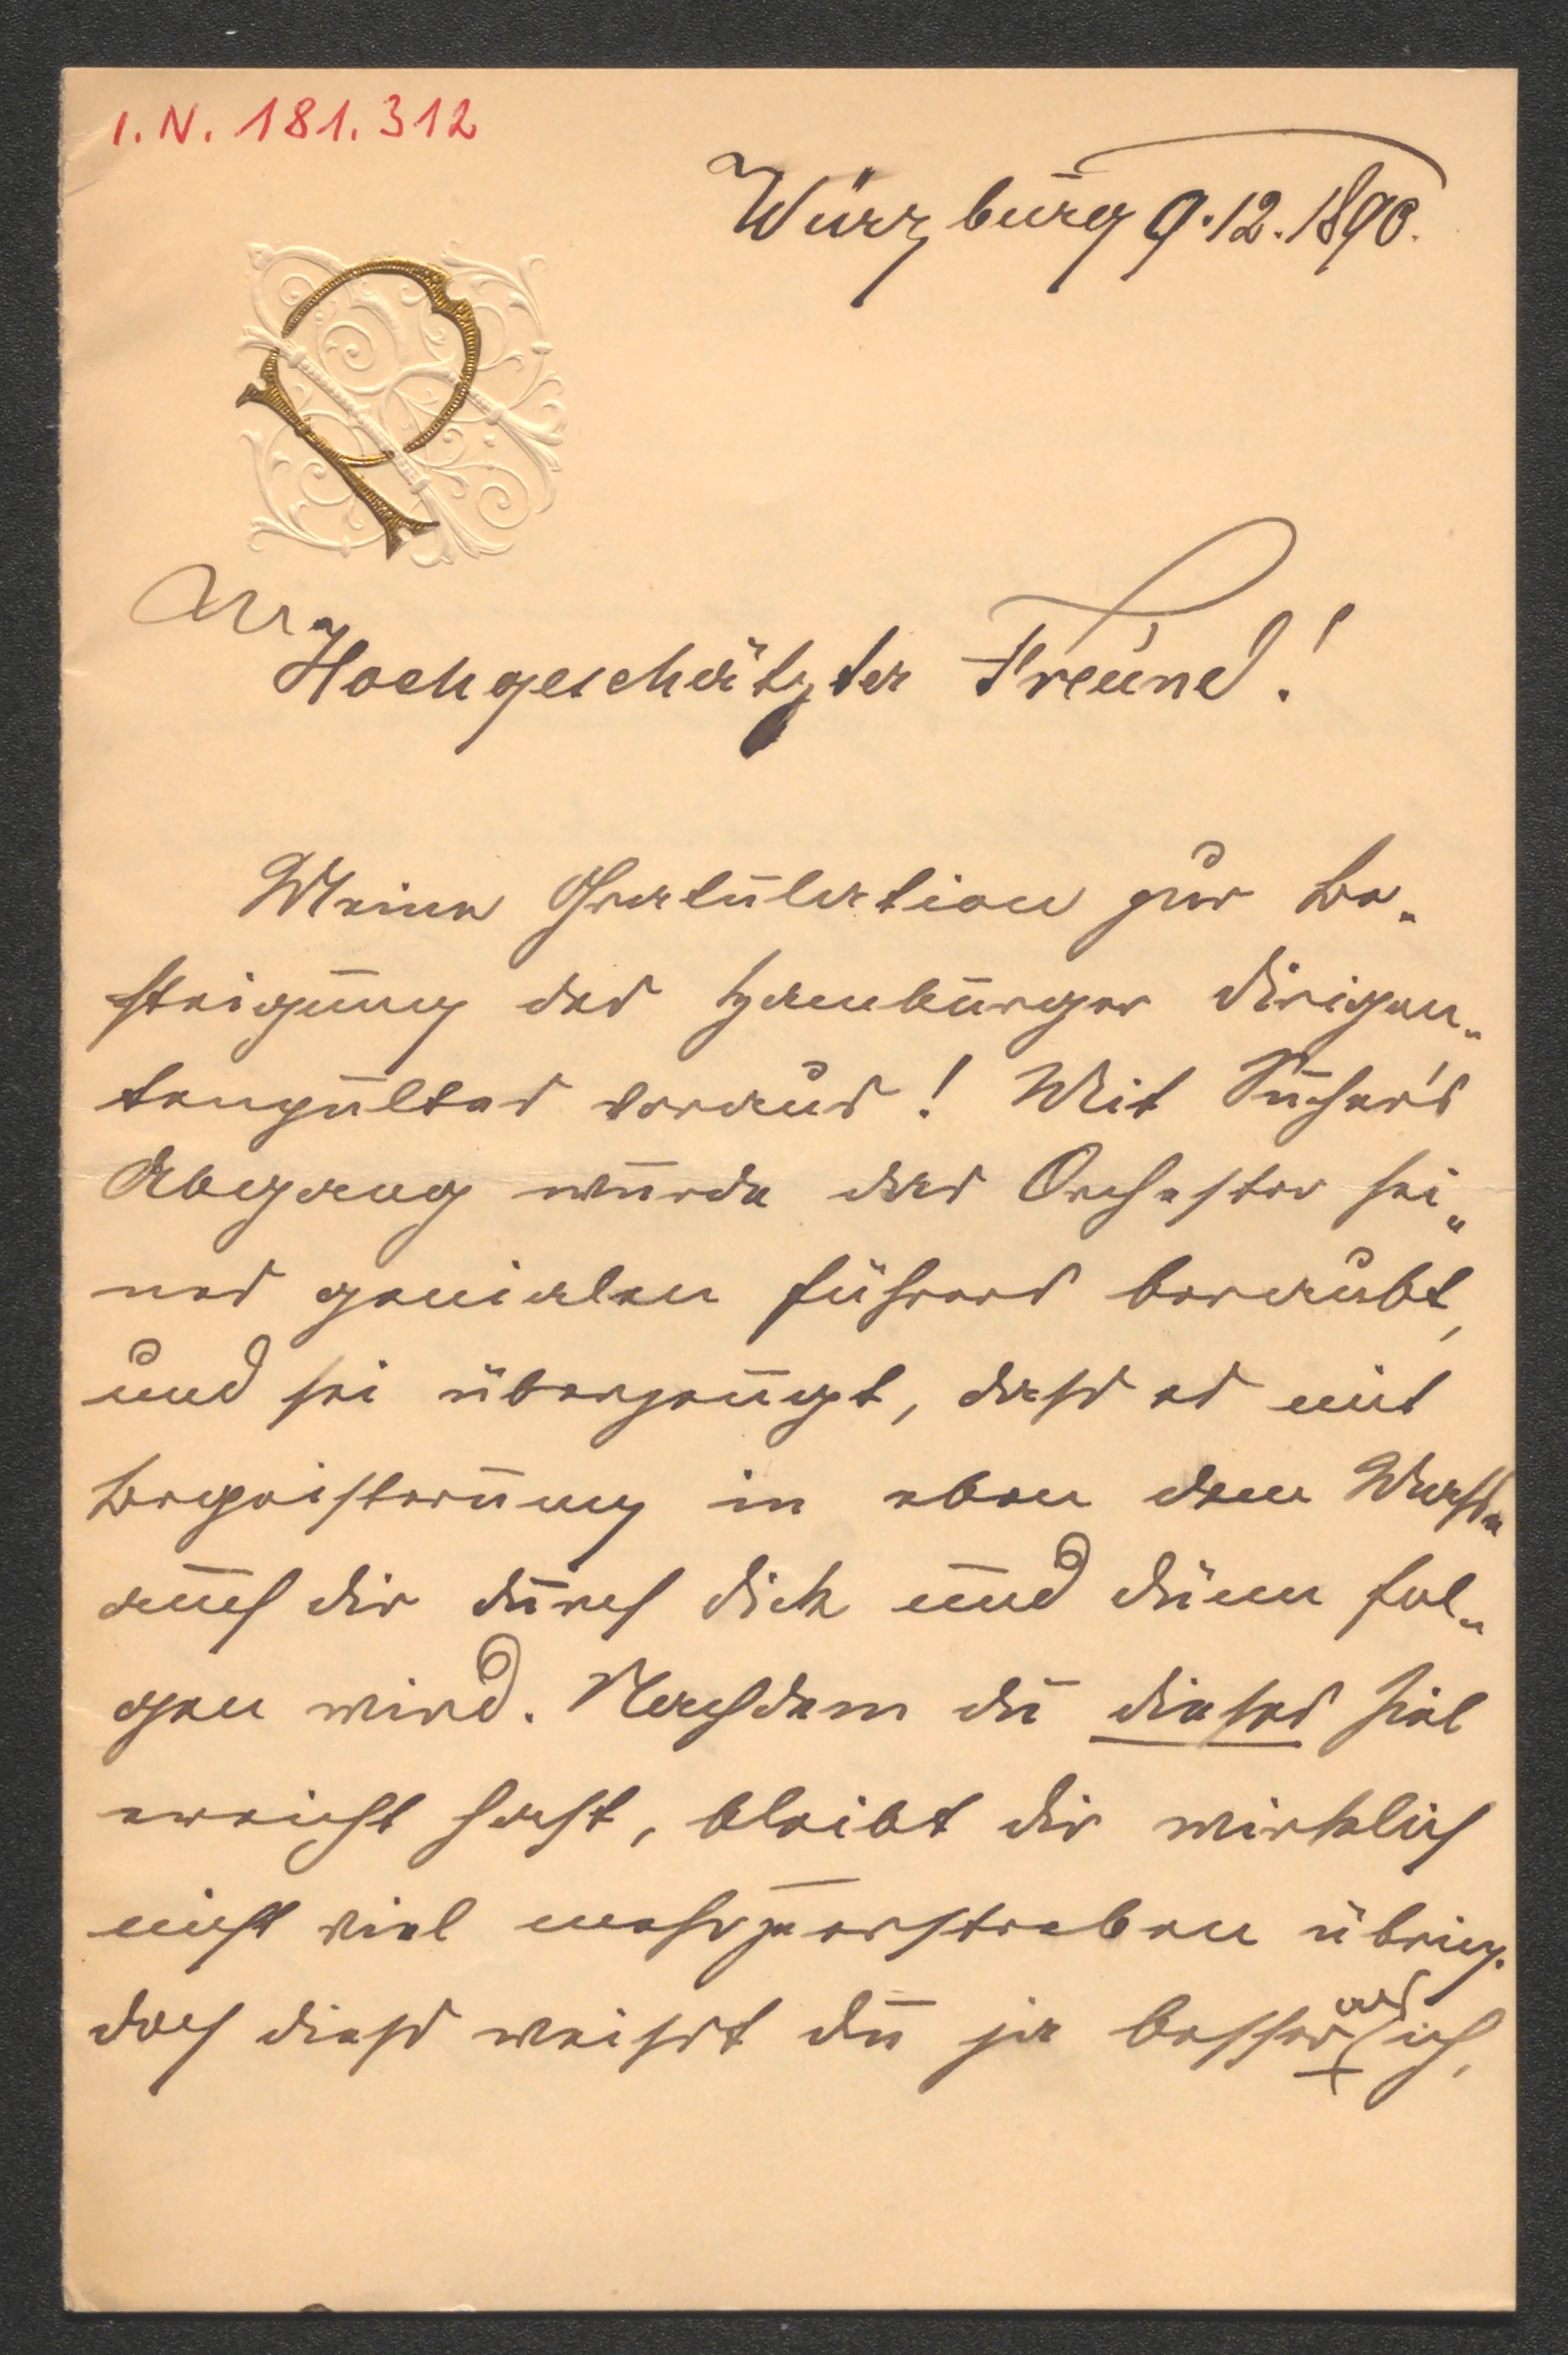 I.N. 181.312
Würzburg 9.12.1890.
Hochgeschätzter Freund!
Meine Gratulation zur Be„
steigung des Hamburger Dirigen„
tenpultes voraus! Mit Sucher's
Abgang wurde das Orchester sei„
nes genialen Führers beraubt,
und sei überzeugt, dass es mit
Begeisterung in eben dem Maße
auch dir durch dick und dünn fol„
gen wird. Nachdem du dieses Ziel
erreicht hast, bleibt dir wirklich
nicht viel mehr zu erstreben übrig.
doch dieß weißt du ja besser als ich,